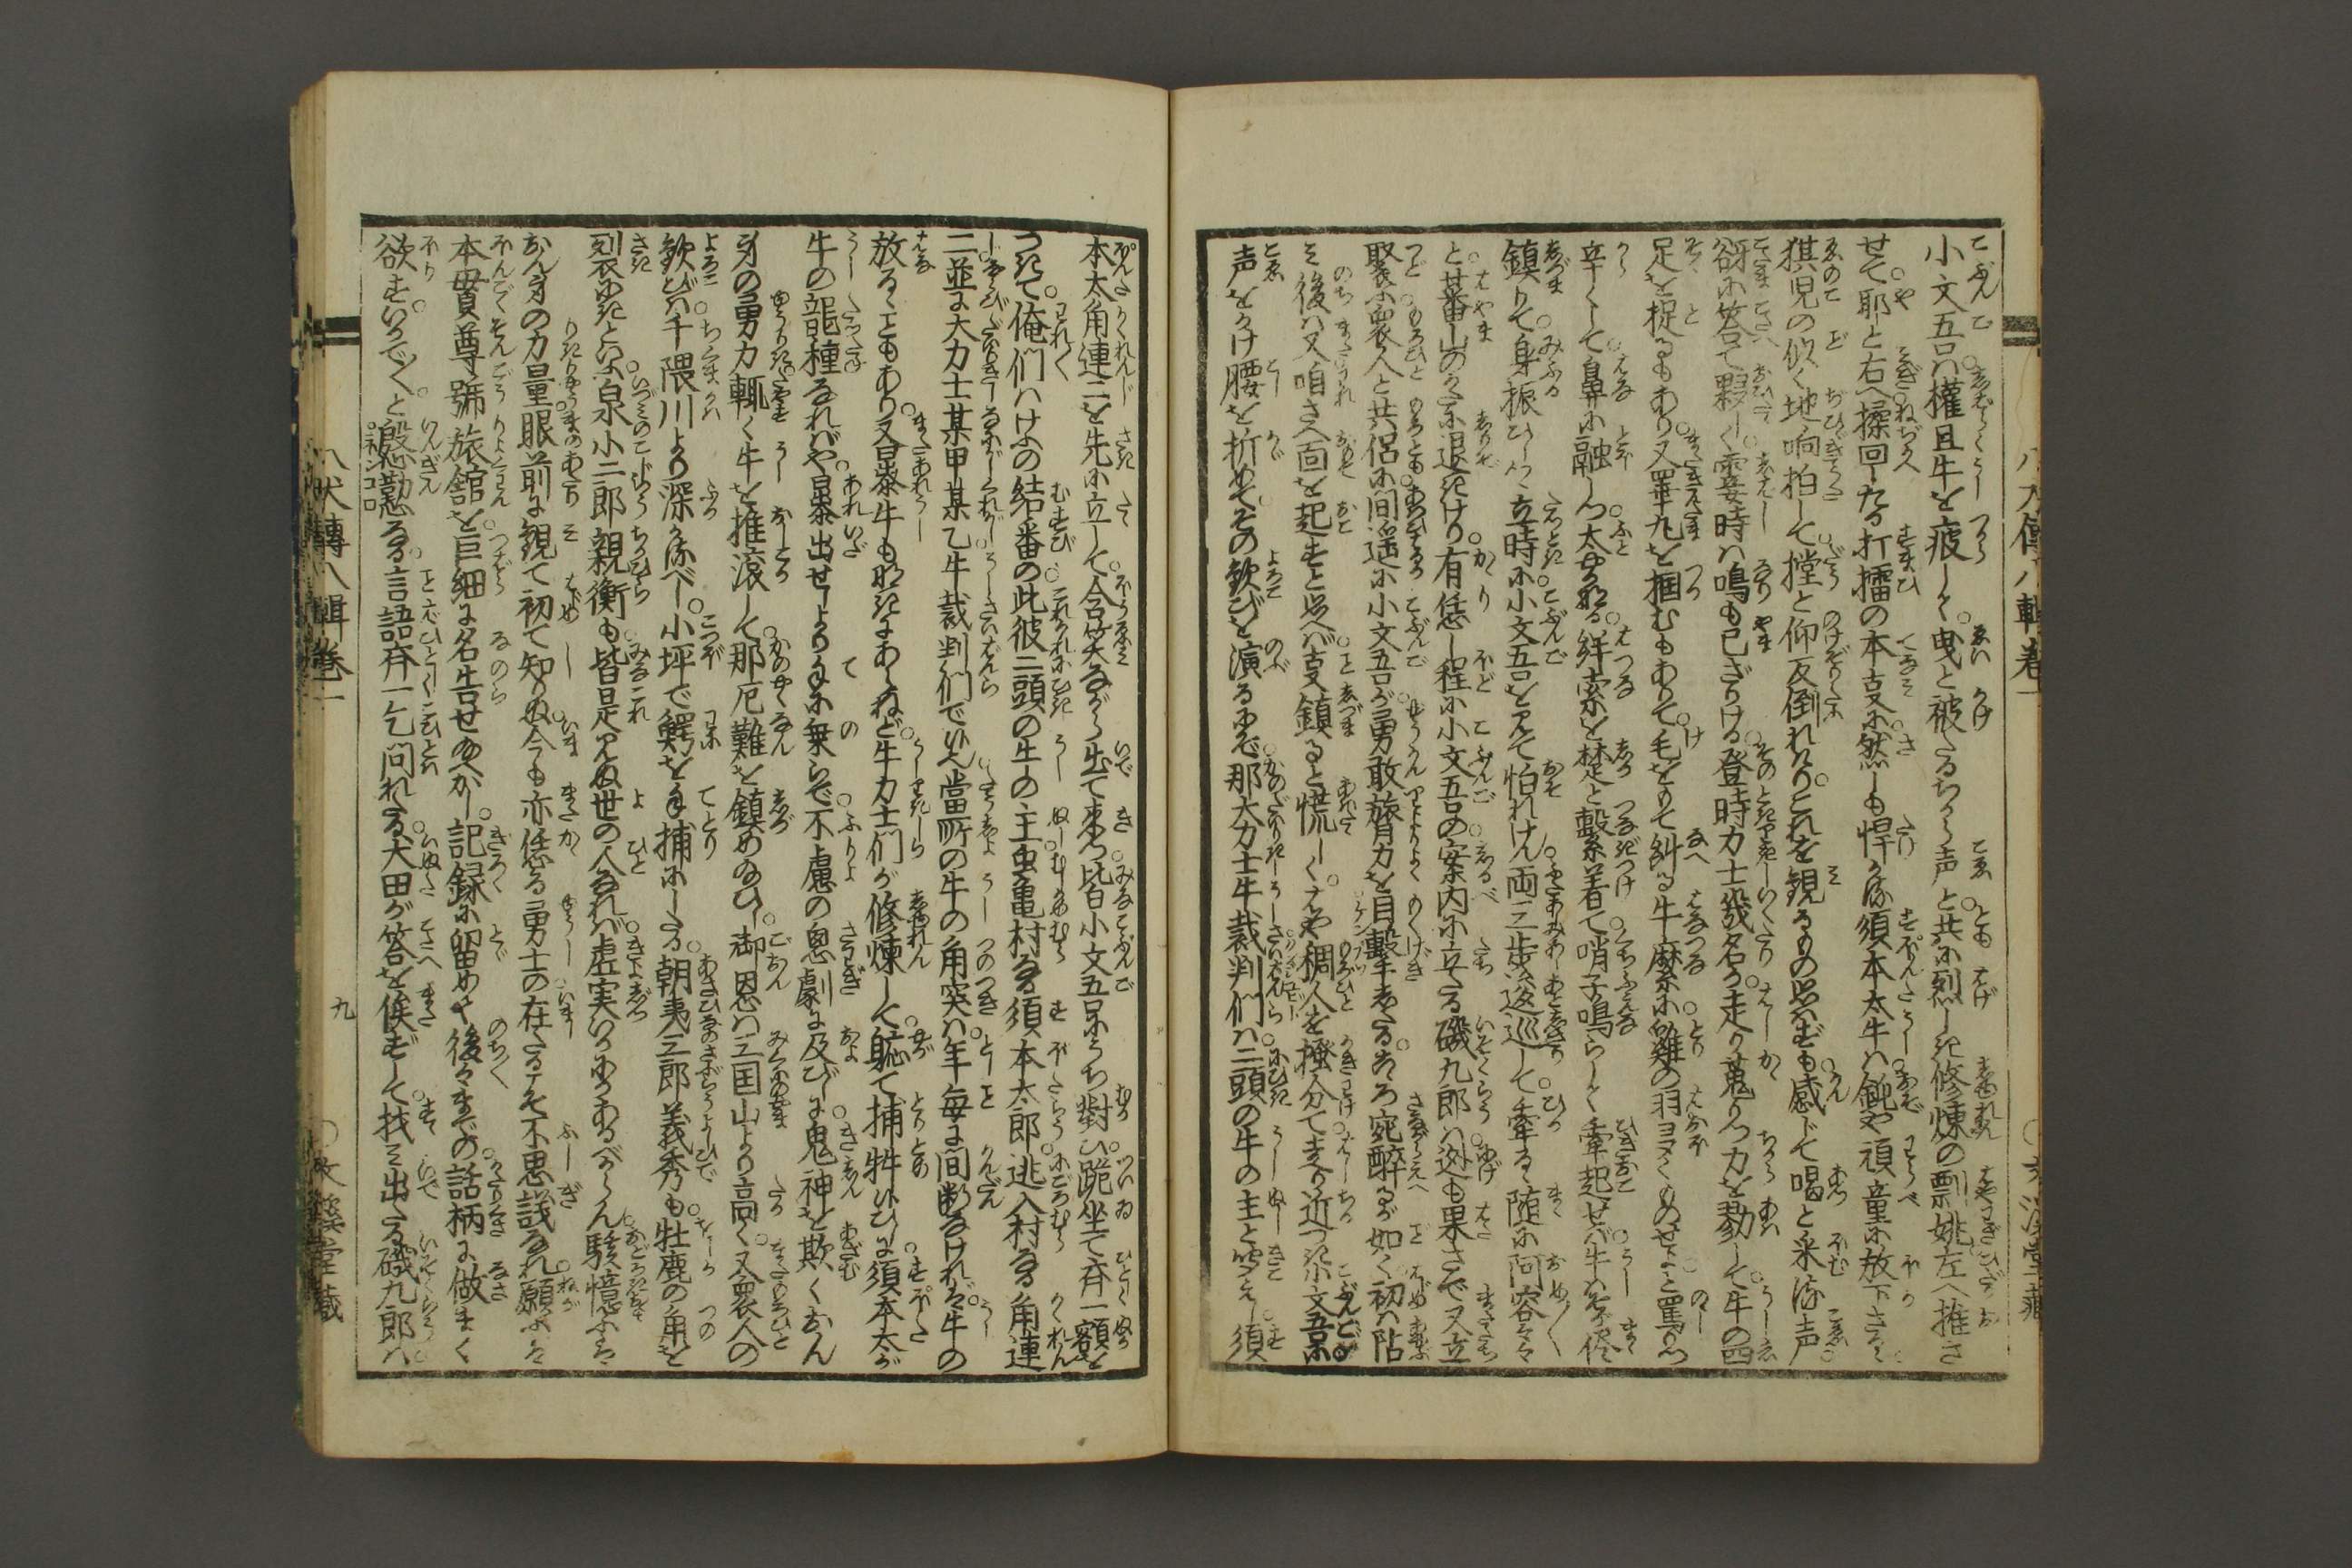 小文吾ハ權且牛を疲して。曳と被たるちから声と。共に烈しき修煉の剽姚左へ推さ
せて。耶と右へ揉回したる打擂の本支に。然しも悍き須本太牛ハ。鈍や頑童に放下さるゝ
猤児の似く。地响拍して。撞と仰反倒れけり。これを観るもの思はずも。感じて喝と采る声
谺に答て夥しく。霎時ハ鳴も已ざりける。登時力士幾名か。走り蒐りつ力を勠して。牛の四
足を捉るもあり。又睾丸を掴むもありて。毛をもて糾る牛縻に。雞の羽ヨヌくめせよと罵りつ
辛くして。鼻に融しつ。太やかなる。絆索を楚と繋着て。哨子鳴らして牽起せバ。牛ハそが侭
鎮りて。身振ひしつゝ立時に。小文吾を見て怕れけん。両三歩後巡して。牽るゝ随に阿容々々
と。蕃山のかたに退きけり。有恁し程に小文吾の。案内に立たる。磯九郎ハ迯も果さで。又立
聚ふ衆人と共侶に。間遥に小文吾が。勇敢旅力を目撃したる。こゝろ宛醉るが如く。初ハ阽
み。後ハ又。咱さへ面を起すと思へバ。支鎮ると慌しく。はや稠人を掻分て。走り近つき小文吾に
声をかけ腰を折めて。その歓びを演る程に。那大力士牛裁判們ハ。二頭の牛の主と聞えし。須
本太角連二を先に立して。含笑ながら出て来つ。皆小文吾にうち對ひ。跪坐て斉一額を
つきて。俺們ハけふの結番の。此彼二頭の牛の主。虫亀村なる須本太郎。逃入村なる角連
二。並に大力士某甲某乙。牛裁判們で候。當所の牛の角突ハ。年毎に間断なけれバ。牛の
放るゝこともあり。又暴牛も胙きにあらねど。牛力士們が修煉して。軈て捕犇ひしに。須本太が
牛の。龍種なれバや。暴出せしより手に乗らで。不慮の怱劇に及びしに。鬼神を欺くおん
身の勇力。輒く牛を推滾して。那厄難を鎮め給ひし。御恩ハ三国山より高く。又衆人の
歓びハ。千隈川より深かるべし。小坪で鰐を手捕にしたる。朝夷三郎義秀も。牡鹿の角を
裂ゆきといふ。泉小二郎親衡も。皆是見ぬ世の人なれバ。虚実いかにかあるべからん。駭憶ふは
おん身の力量。眼前に観て初て知りぬ。今も亦恁る勇士の在たるぞ不思議なれ。願ふは
本貫尊號旅舘を。巨細に名告せ給へかし。記録に留めて後々までの。話柄に做まく
欲す。いかでいかでと慇懃なる。言語斉一乞問れたる。犬田が答を俟ずして。找み出たる磯九郎ハ
八犬傳八輯巻一
九
八犬傳八輯巻一
文溪堂藏